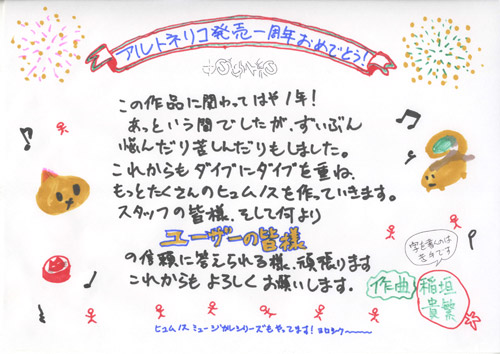 アルトネリコ発売一周年おめでとう!
この作品に関わってはや1年!
あっという間でしたが、ずいぶん
悩んだり苦しんだりもしました。
これからもダイブにダイブを重ね、
もっとたくさんのヒュムノスを作っていきます。
スタッフの皆様、そして何より
ユーザーの皆様
の信頼に答えられる様、頑張ります
これからもよろしくお願いします。
字を書くのは
苦手です
作曲
稲垣
貴繁
ヒュムノスミュージカルシリーズもやってます!ヨロシクー